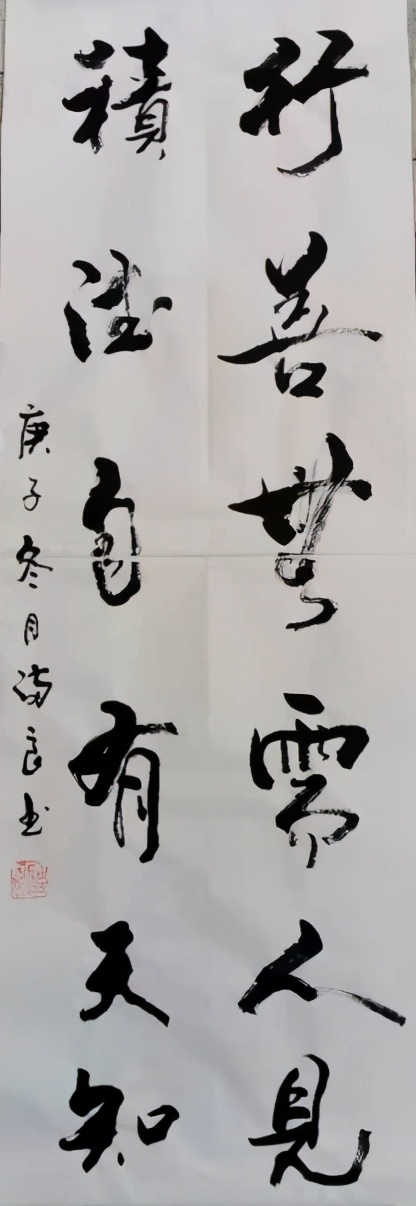 行善無需人見
積德自有天知
庚子冬月满良书